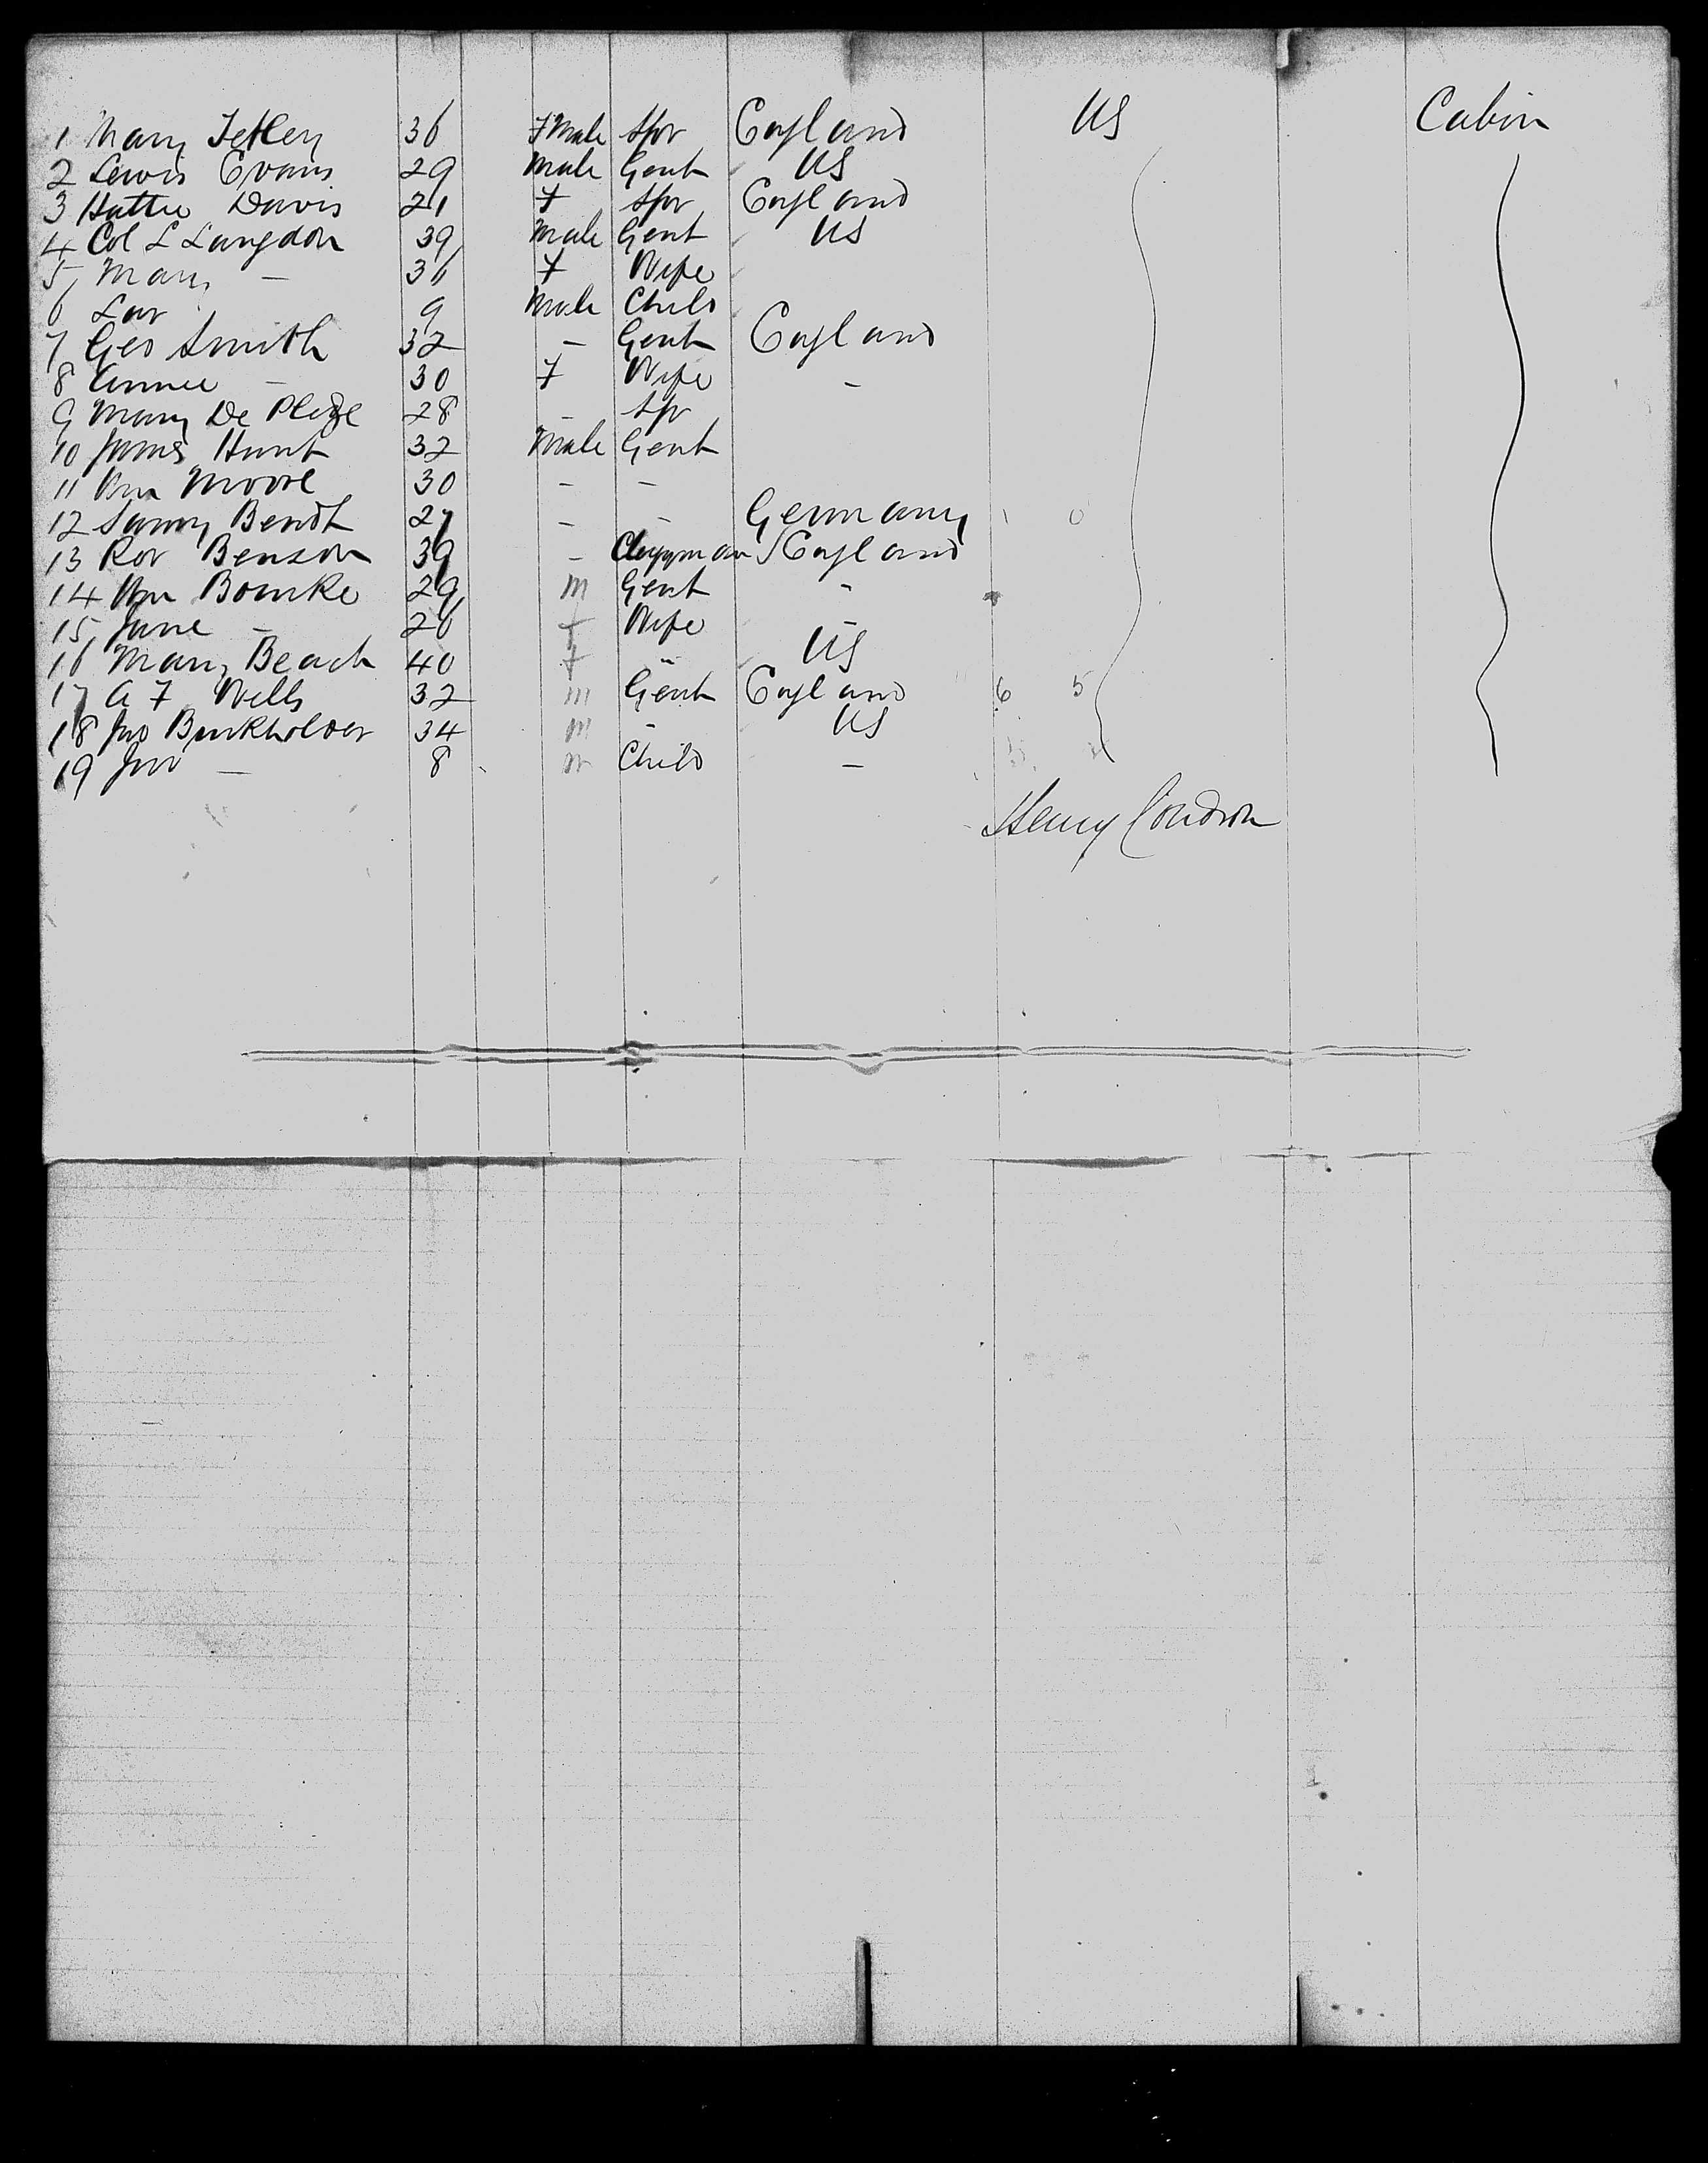 1 Mary Tetley 36 Fmale Spr England US Cabin
2 Lewis Evans 29 Male Gent US
3 Hattie Davis 21 F Spr England
4 Col L Langdon 39 Male Gent US
5 Mary — 36 F Wife
6 9 Male Child
7 Geo Smith 32 — Gent England
8 Annie — 30 F Wife —
9 Mary De 28 — Spr
10 James Hunt 32 Male Gent
11 Wm Moore 30 — —
12 Bendt 27 — — Germany 1 0
13 Rev Benson 39 — Clergyman England
14 Wm Bourke 29 M Gent "
15 Jane — 26 F Wife —
16 Mary Beach 40 F " US
17 A F Wells 32 M Gent England 6 5
18 Jno Burkholder 34 M - US
19 Jno — 8 M Child —
Henry Condron